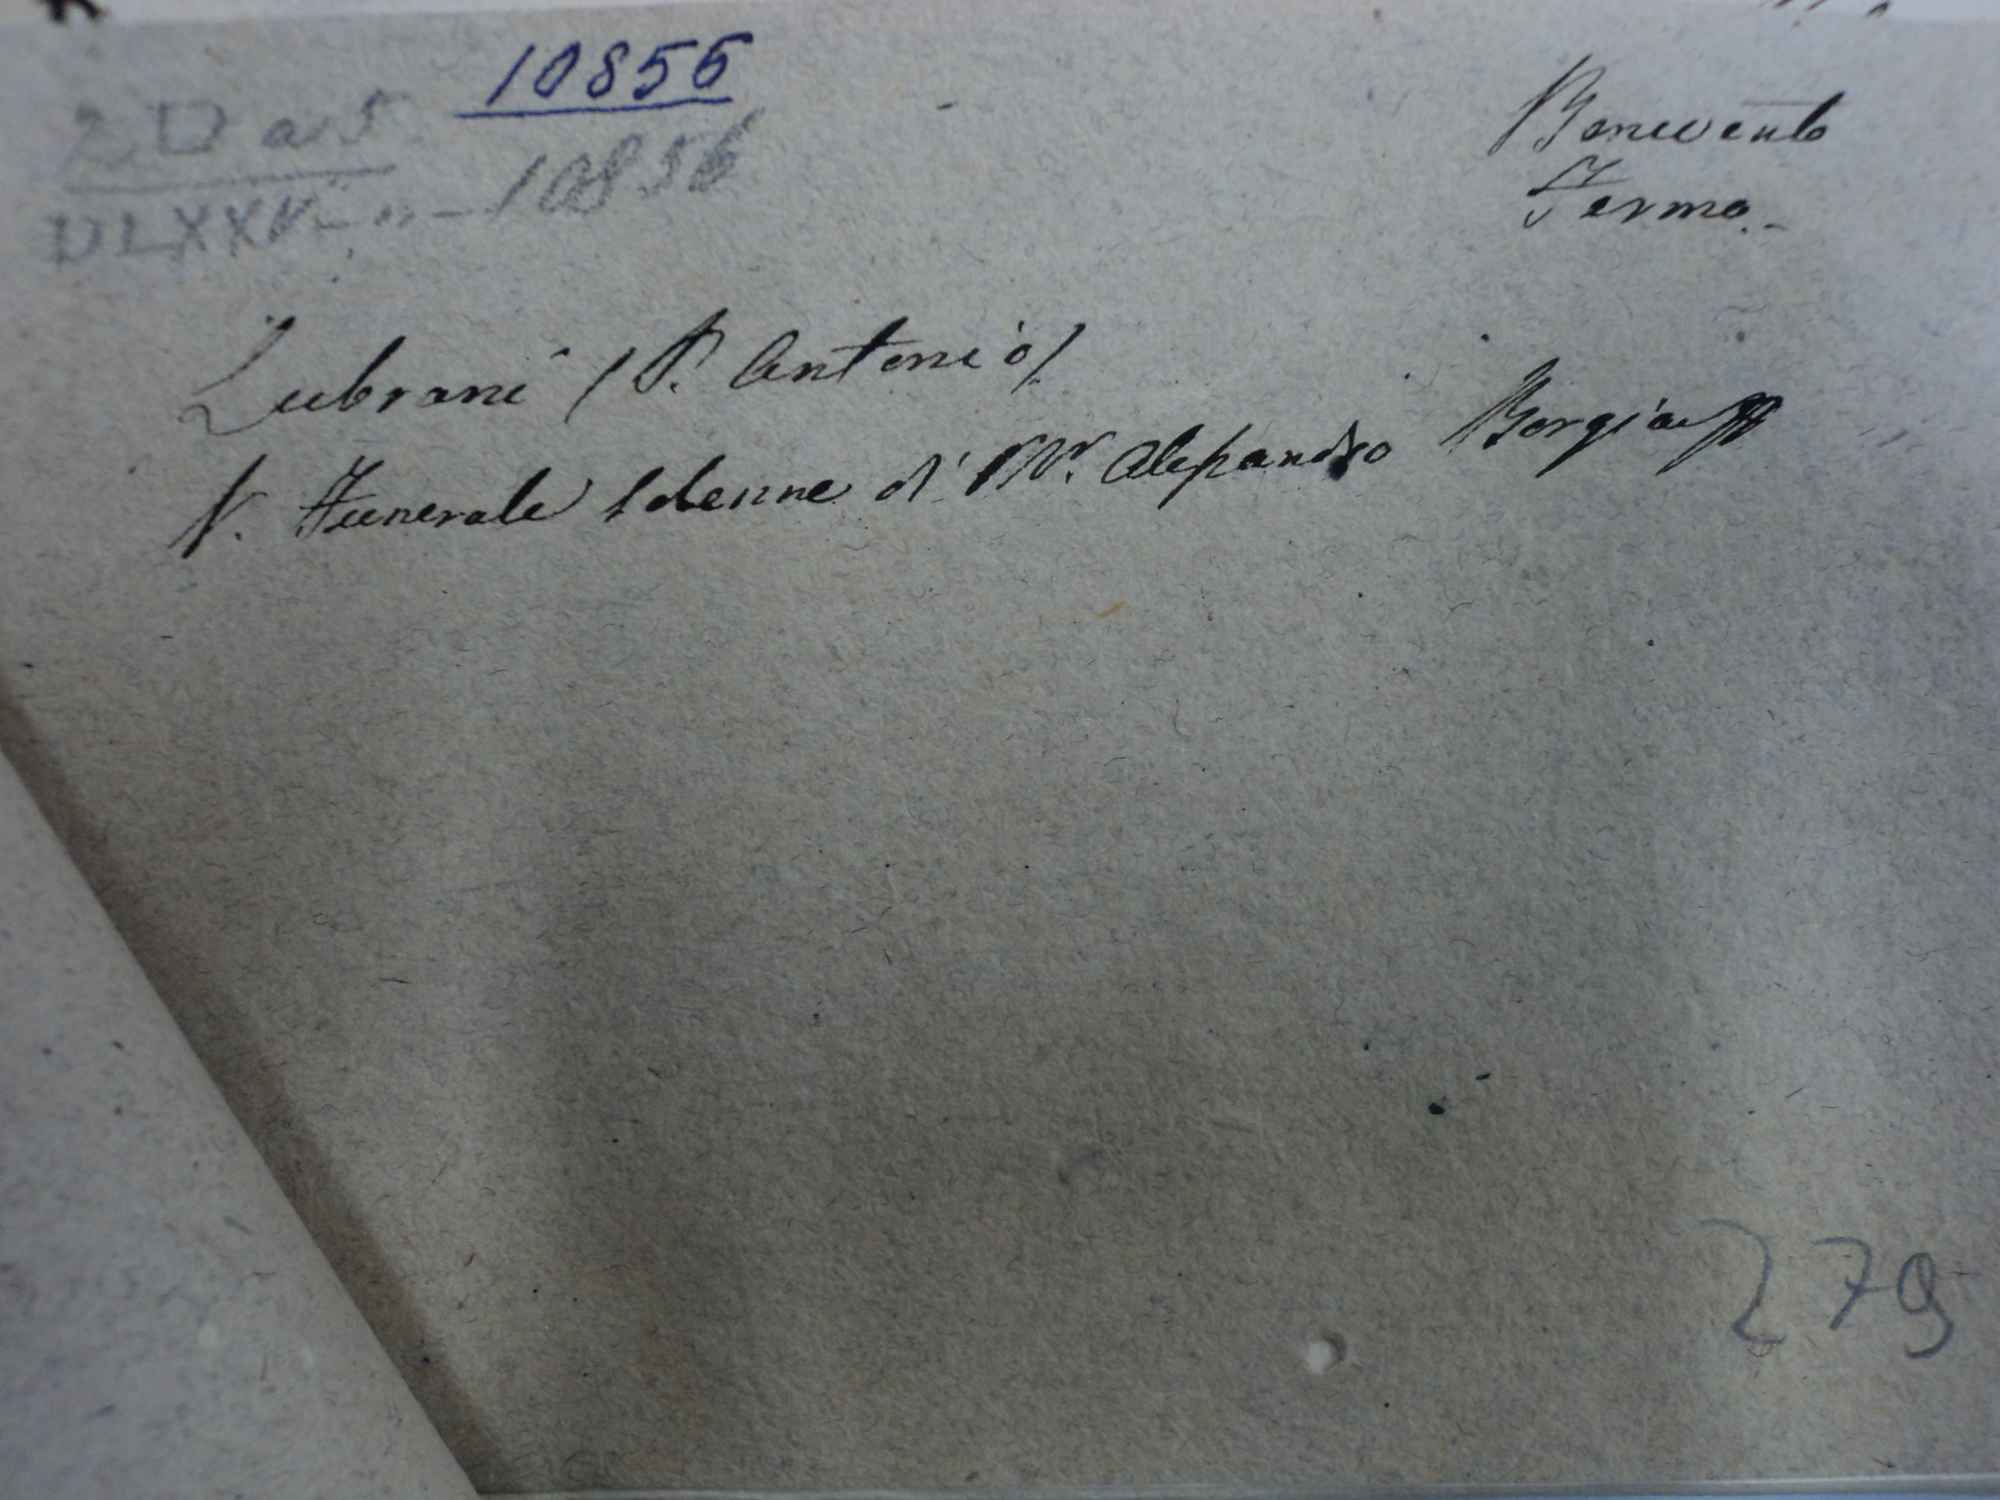 10856
2 D a 5
DLXXV - n - 10856
Benevento
Fermo.-
Lubrani (P. Antonio).
V. Funerale solenne di Mr. Alessandro Borgia
279